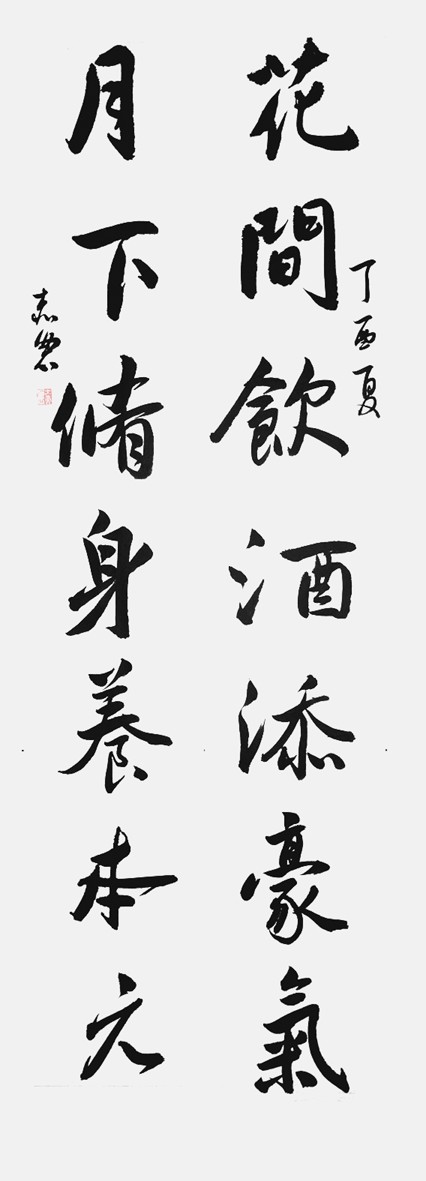 丁酉夏
花間飲酒添豪氣
月下脩身養本元